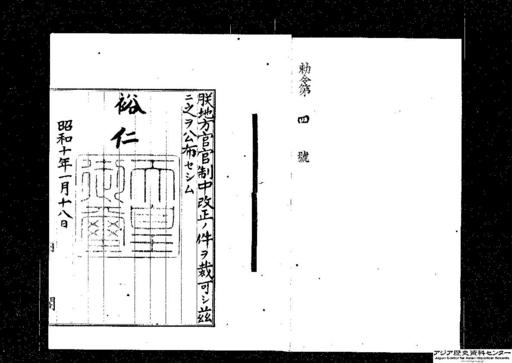 勅令第四號
朕地方官官制中改正ノ件ヲ裁可シ茲
ニ之ヲ公布セシム
裕仁
天皇御璽
昭和十年一月十八日
アジア歴史資料センター
Japan Center for Asian Historical Records